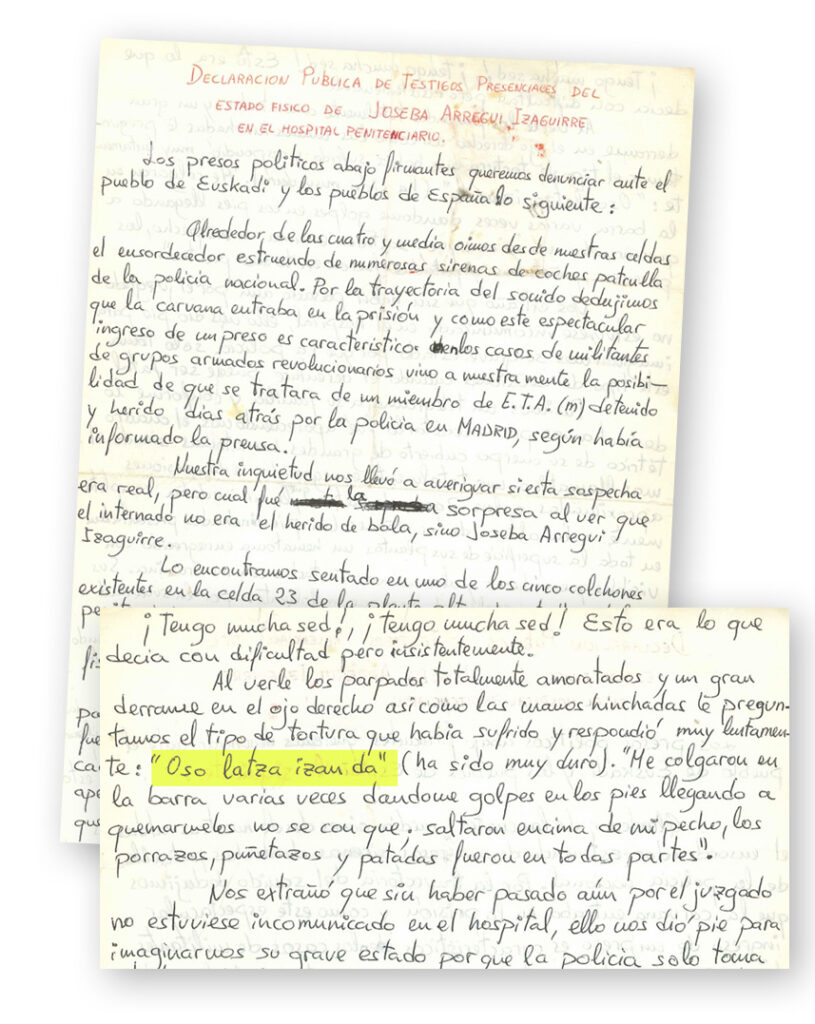 DECLARACION PUBLICA DE TESTIGOS PRESENCIALES DEL
ESTADO FISICO DE JOSEBA ARREGUI IZAGUIRRE
EN EL HOSPITAL PENITENCIARIO.
Los presos politicos abajo firmantes queremos denunciar ante el
pueblo de Euskadi y los pueblos de España lo siguiente:
Alrededor de las cuatro y media oimos desde nuestras celdas
el ensordecedor estruendo de numerosas sirenas de coches patrulla
de la policia nacional. Por la trayectoria del sonido dedujimos
que la carvana entraba en la prisión y como este espectacular
ingreso de un preso es caracteristico en los casos de militantes
de grupos armados revolucionarios vino a nuestra mente la posibi-
lidad de que se tratara de un miembro de E.T.A. (m) detenido
y herido dias atrás por la policia en MADRID, según habia
informado la prensa.
Nuestra inquietud nos llevó a averiguar si esta sospecha
era real, pero cual fué la sorpresa al ver que
el internado no era el herido de bala, sino Joseba Arregui
Izaguirre.
Lo encontramos sentado en uno de los cinco colchones
existentes en la celda 23 de la planta alta
pe
fis
pa
fue
ca
ape
gus
¡Tengo mucha sed!, ¡tengo mucha sed! Esto era lo que
decia con dificultad pero insistentemente.
Al verle los parpados totalmente amoratados y un gran
derrame en el ojo derecho asi como las manos hinchadas le pregun-
tamos el tipo de tortura que habia sufrido y respondió muy lentamen-
te: "Oso latza izan da" (ha sido muy duro). "Me colgaron en
la barra varias veces dandome golpes en los pies llegando a
quemarmelos no se con que; saltaron encima de mi pecho, los
porrazos, puñetazos y patadas fueron en todas partes".
Nos extrañó que sin haber pasado aún por el juzgado
no estuviese incomunicado en el hospital, ello nos dió pie para
imaginarnos su grave estado porque la policia solo toma